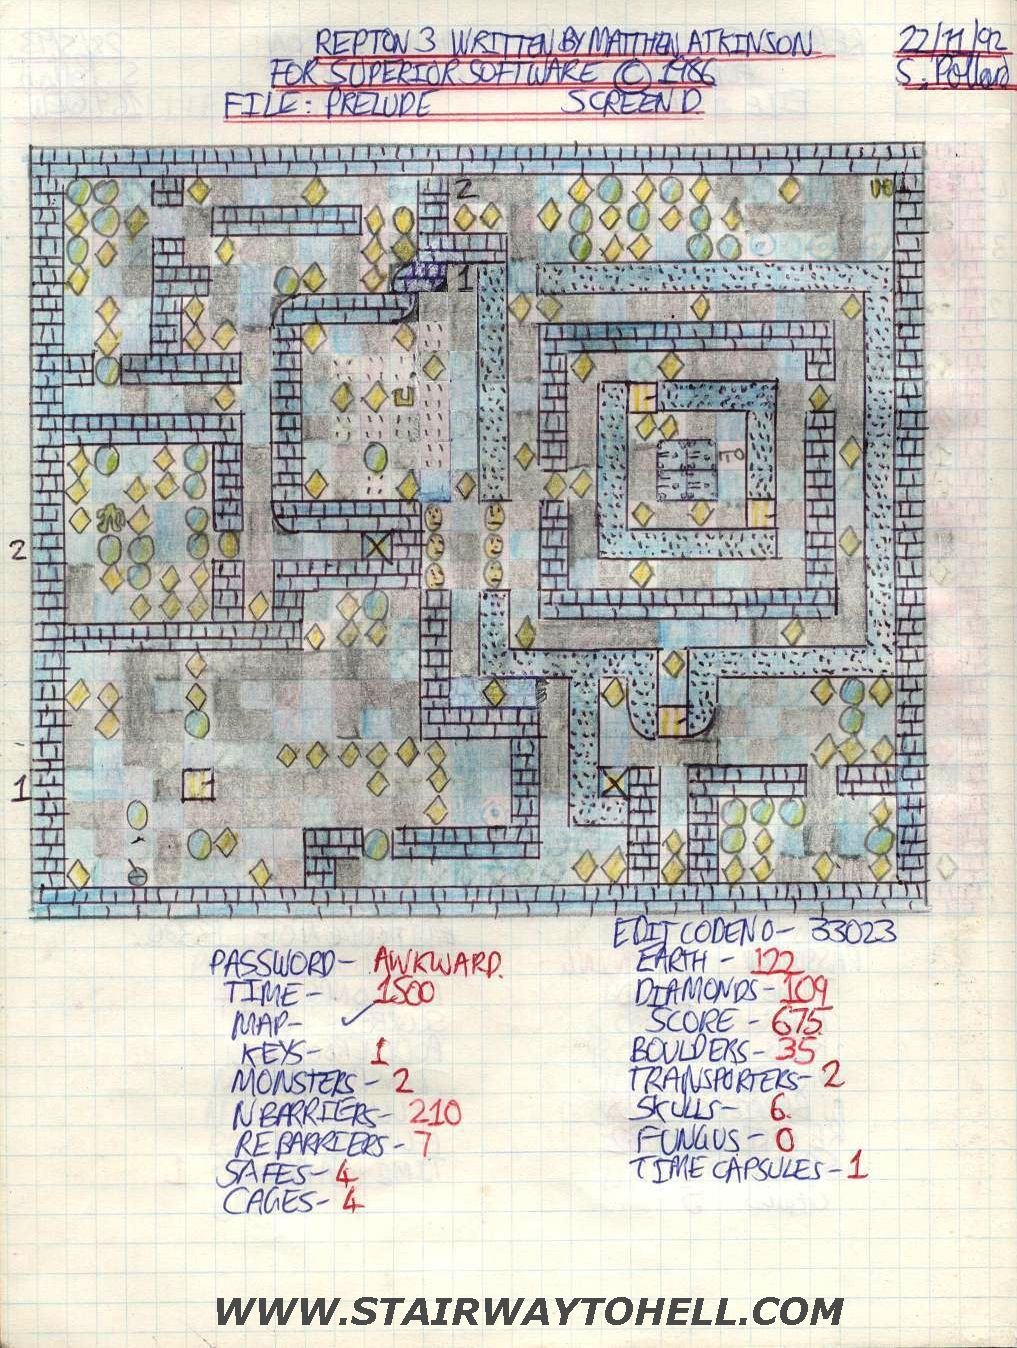 REPTON 3 WRITTEN BY MATTHEW ATKINSON
22/11/92
FOR SUPERIOR SOFTWARE © 1986
S. Pollard
FILE: PRELUDE SCREEN D.
2
1
2
1
EDIT CODE NO - 33023
PASSWORD - AWKWARD.
EARTH - 122
TIME - 1500
DIAMONDS - 109
MAP - ✓
SCORE - 675
KEYS - 1
BOULDERS - 35
MONSTERS - 2
TRANSPORTERS - 2
N BARRIERS - 210
SKULLS - 6.
RE BARRIERS - 7
FUNGUS - 0
SAFES - 4
TIME CAPSULES - 1
CAGES - 4
WWW.STAIRWAYTOHELL.COM